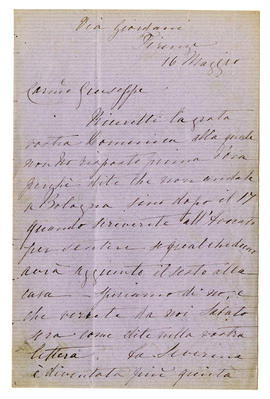 Via Giordani
Firenze
16 Maggio
Carmo Giuseppe
Ricevetti la grata
vostra Domenica alla quale
non ho risposto prima d'ora
perchè dite che non andate
a Bologna sino dopo il 17
quando scriverete all'Avvocato
per sentire se qualcheduno
avrà aggiunto il sesto alla
casa. Speriamo di no, e
che verrete da noi Sabato
sera come dite nella vostra
lettera. La Severina
è diventata più quieta